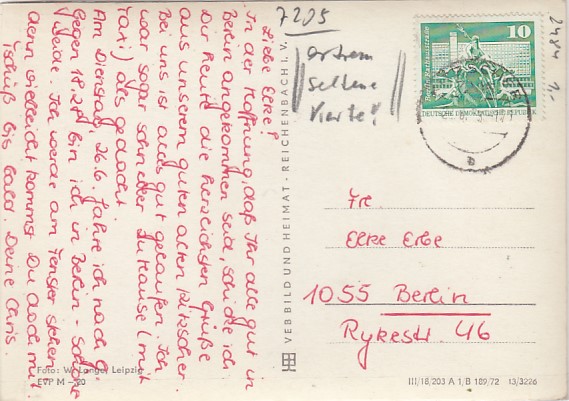 Liebe Elke!
In der Hoffnung, daß Ihr alle gut in
Berlin angekommen seid, schicke ich
Dir heute die herzlichsten Grüße
aus unserem guten alten Kitzscher.
Bei uns ist alles gut gelaufen. Ich
war sogar schneller zu Hause (mit
Taxi) als gedacht.
Am Dienstag, 26.6. fahre ich nach G.
Gegen 18.24 bin ich in Berlin - Schöne
weide. Ich werde am Fenster stehen,
denn vielleicht kommst Du doch mit
Tschüß bis bald. Deine Chris.
Foto: W. Lange, Leipzig
EVP M –.20
VEB BILD UND HEIMAT · REICHENBACH I. V.
7205
extrem
seltene
Karte!
10
Berlin, Rathausstraße
DEUTSCHE DEMOKRATISCHE REPUBLIK
2484
1.-
Elke Erbe
1055 Berlin
Rykestr. 46
III/18/203 A 1/B 189/72 13/3226